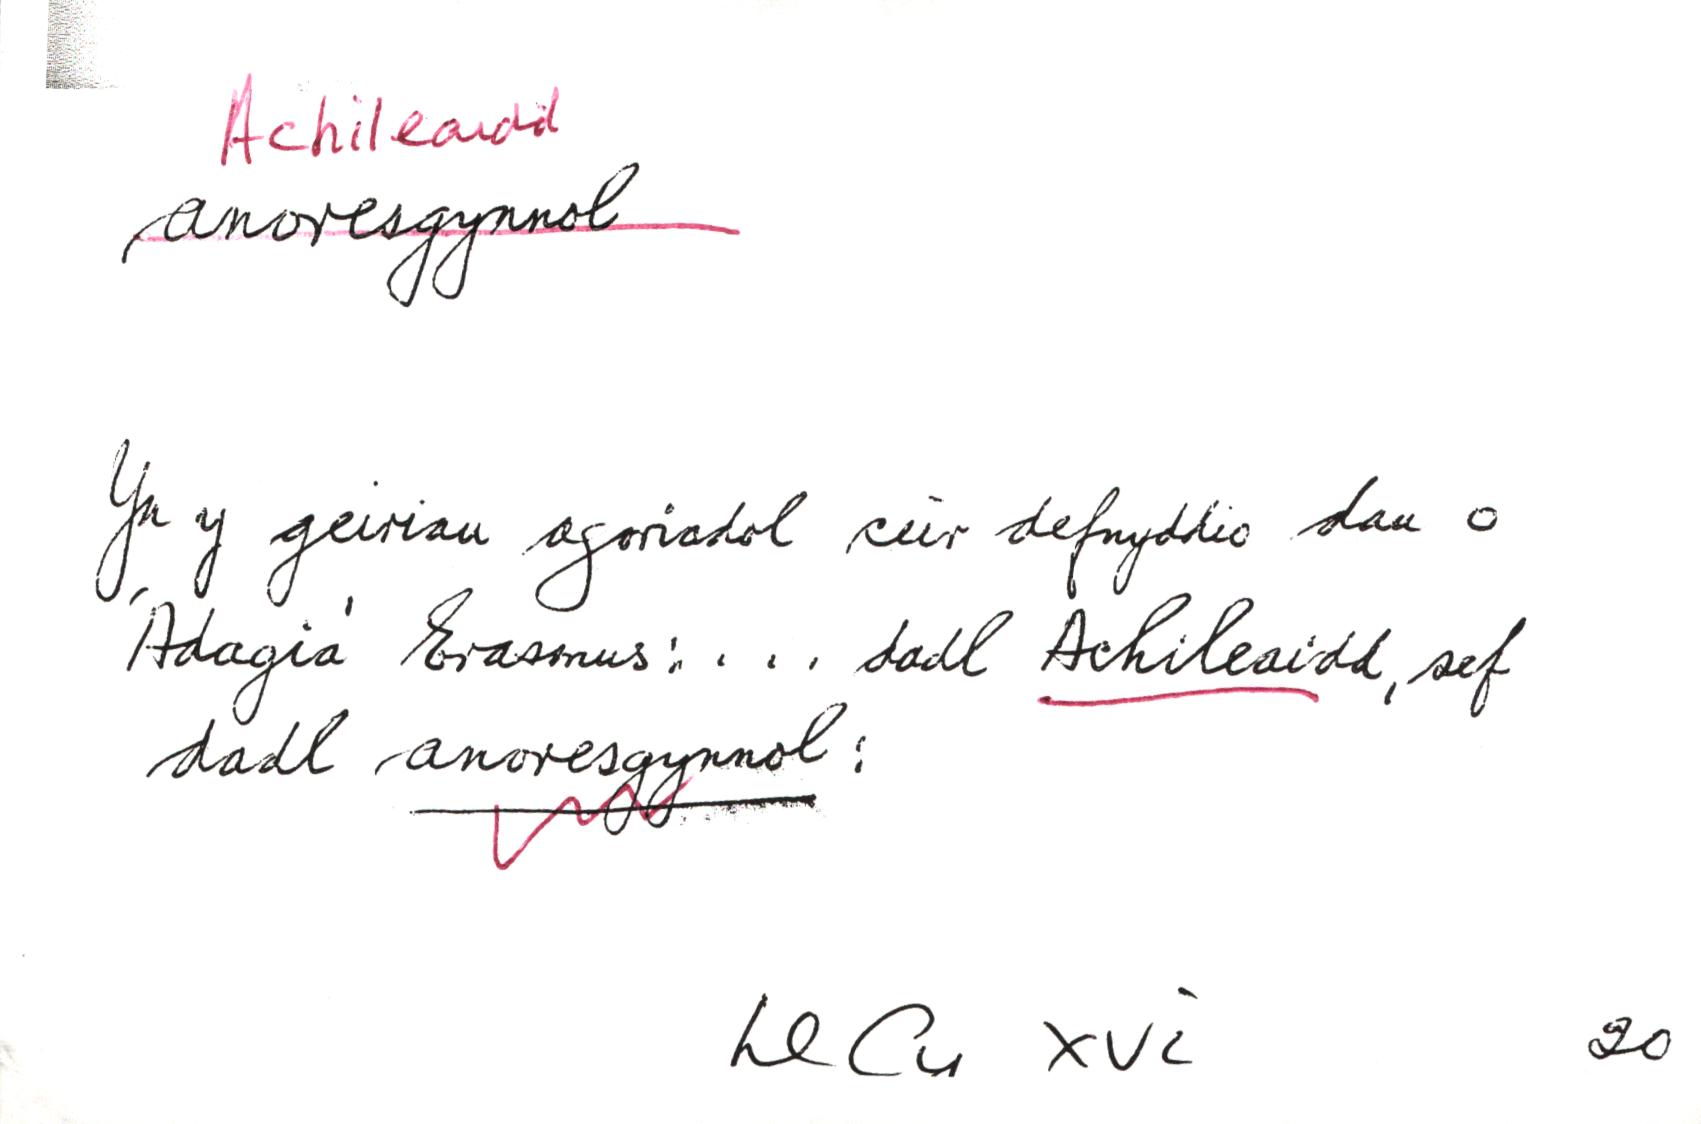 Achileaidd
anoresgynnol
Yn y geiriau agoriadol ceir defnyddio dau o
'Adagia' Erasmus: . . . dadl Achileaidd, sef
dadl anoresgynnol:
LlCu xvi 20